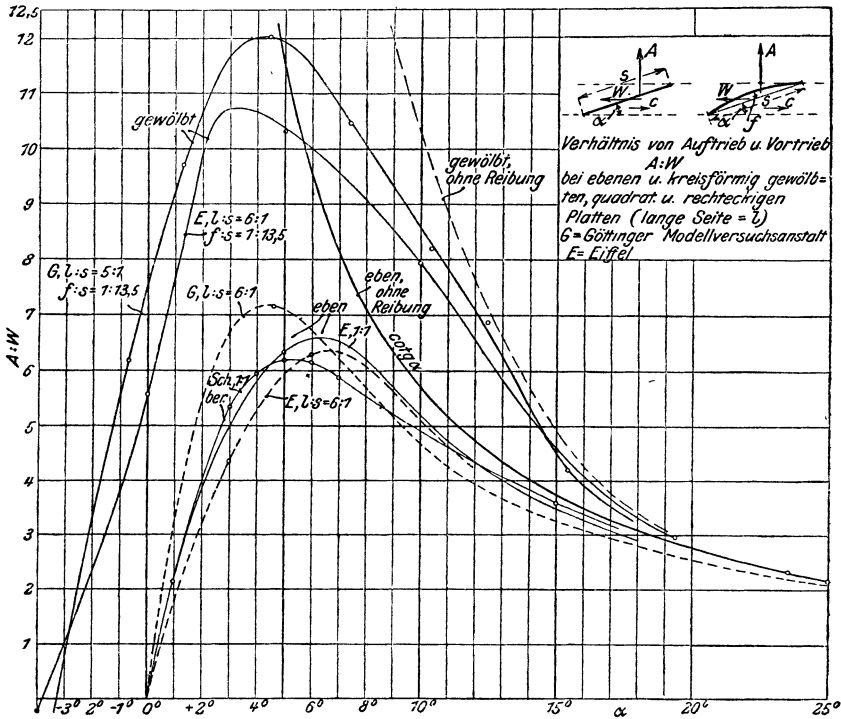 12,5
12
11
10
9
8
7
6
5
4
3
2
1
A:W
-3° 2° -1° 0° +2° 4° 6° 8° 10° 15° α 20° 25°
gewölbt
E, l:s=6:1
f:s=1:13,5
G, l:s=5:1,
f:s=1:13,5
G, l:s=6:1
eben
E,1:1
Sch,1:1
ber.
E, l:s=6:1
eben,
ohne
Reibung
cotg α
gewölbt,
ohne Reibung
A
s
W
c
α
A
W
s
c
α
f
Verhältnis von Auftrieb u. Vortrieb
A:W
bei ebenen u. kreisförmig gewölb=
ten, quadrat. u. rechteckigen
Platten (lange Seite = l)
G = Göttinger Modellversuchsanstalt
E = Eiffel